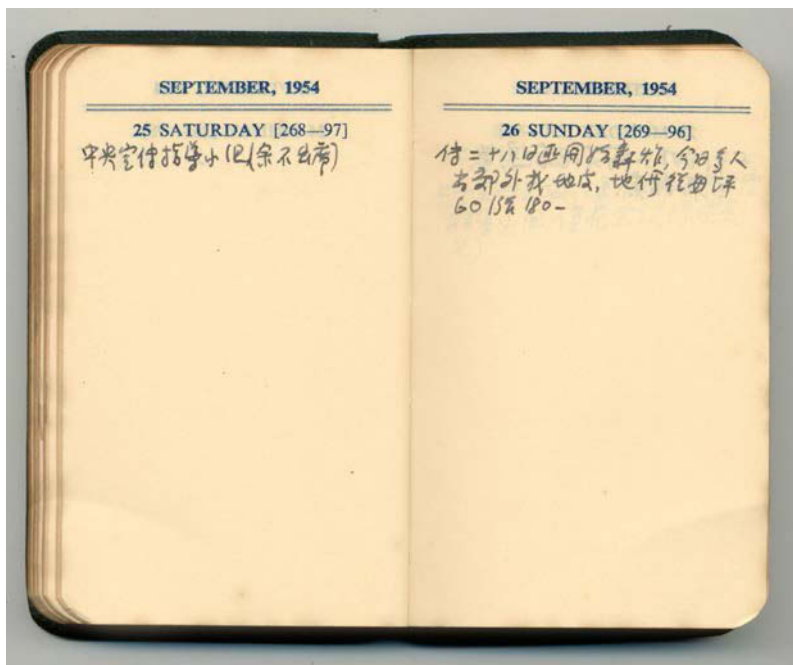 SEPTEMBER, 1954
25 SATURDAY [268—97]
中央宣传指導小组(余不出席)
SEPTEMBER, 1954
26 SUNDAY [269—96]
传二十八日匪開始轟炸,今日多人
去郊外找地皮,地价從每坪
60 涨至 180-